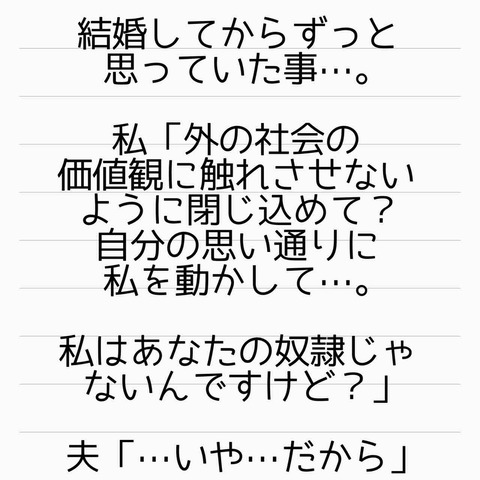 結婚してからずっと
思っていた事…。
私「外の社会の
価値観に触れさせない
ように閉じ込めて？
自分の思い通りに
私を動かして…。
私はあなたの奴隷じゃ
ないんですけど？」
夫「…いや…だから」